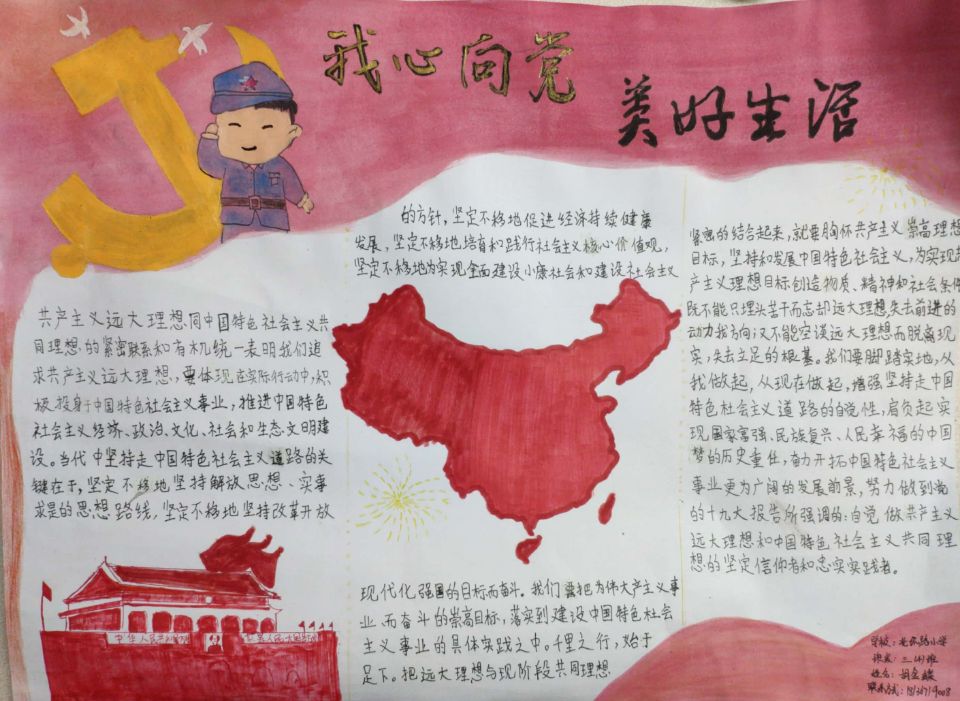 我心向党
美好生活
共产主义远大理想同中国特色社会主义共
同理想的紧密联系和有机统一表明我们追
求共产主义远大理想,要体现在实际行动中,积
极投身于中国特色社会主义事业,推进中国特色
社会主义经济、政治、文化、社会和生态文明建
设。当代中坚持走中国特色社会主义道路的关
键在于,坚定不移地坚持解放思想、实事
求是的思想路线,坚定不移地坚持改革开放
的方针,坚定不移地促进经济持续健康
发展,坚定不移地培育和践行社会主义核心价值观,
坚定不移地为实现全面建设小康社会和建设社会主义
现代化强国的目标而奋斗。我们要把为伟大产主义事
业而奋斗的崇高目标,落实到建设中国特色社会
主义事业的具体实践之中。千里之行,始于
足下。把远大理想与现阶段共同理想
紧密的结合起来,就要胸怀共产主义崇高理想
目标,坚持和发展中国特色社会主义,为实现共
产主义理想目标创造物质、精神和社会条件
既不能只埋头苦干而忘却远大理想,失去前进的
动力我方向,又不能空谈远大理想而脱离现
实,失去立足的根基。我们要脚踏实地,从
我做起,从现在做起,增强坚持走中国
特色社会主义道路的自觉性,肩负起实
现国家富强、民族复兴、人民幸福的中国
梦的历史重任,奋力开拓中国特色社会主义
事业更为广阔的发展前景,努力做到党
的十九大报告所强调的:自觉做共产主义
远大理想和中国特色社会主义共同理
想的坚定信仰者和忠实实践者。
学校:路小学
班级:三班
姓名:
联系方式: